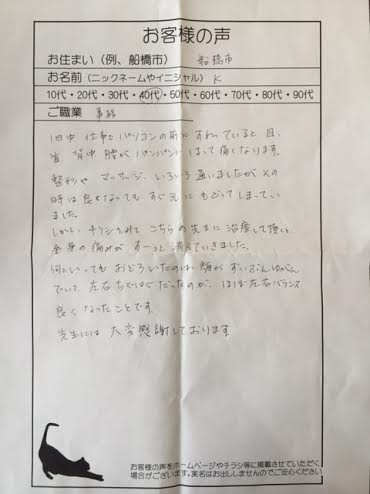 お客様の声
お住まい（例、船橋市） 船橋市
お名前（ニックネームやイニシャル） K
10代・20代・30代・40代・50代・60代・70代・80代・90代
ご職業 事務
1日中 仕事でパソコンの前にすわっていると 目、
首 背中 腰がパンパンにはって痛くなります。
整形や マッサージ、いろいろ通いましたがその
時は良くなっても すぐ元にもどってしまってい
ました。
しかし チラシをみて こちらの先生に 治療して頂くと
全身の痛みが すーっと消えていきました。
何といっても おどろいたのは 顔がずいぶんゆがん
でいて、左右ちぐはぐだったのが、ほぼ左右バランス
良くなったことです。
先生には 大変感謝しております
お客様の声をホームページやチラシ等に掲載させていただく
場合がございます。実名はお出ししませんのでご安心ください